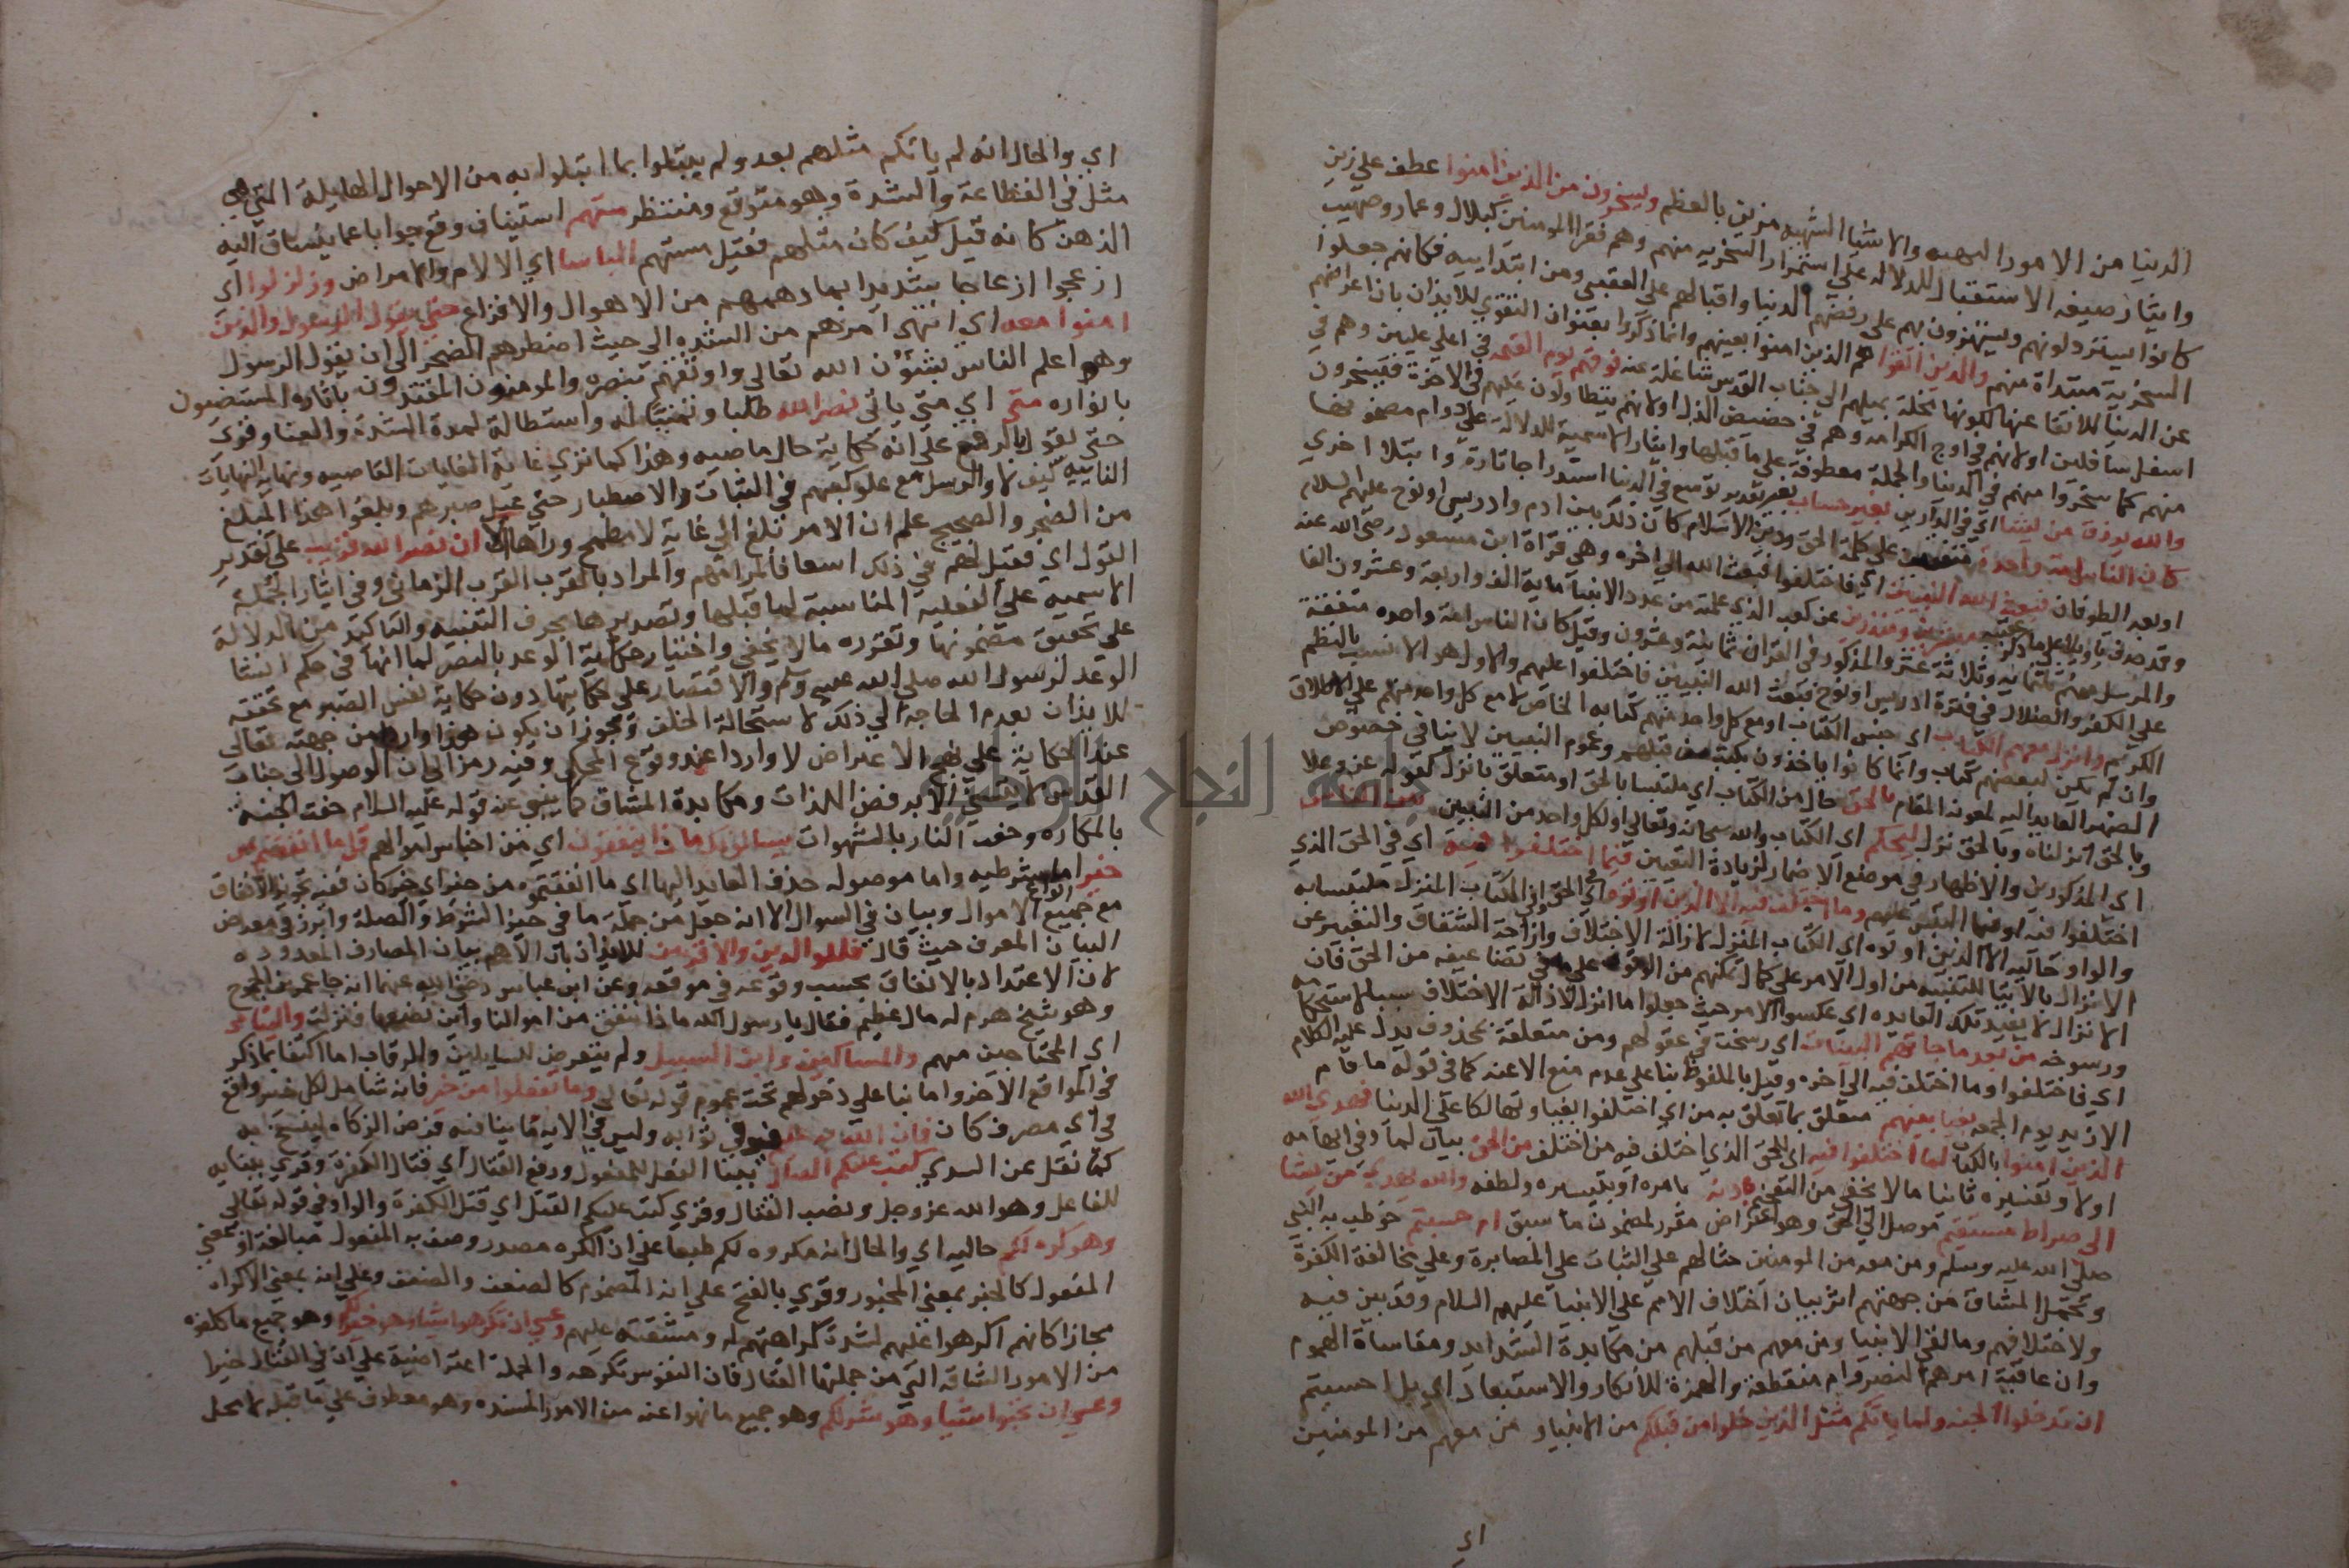 الدنيا من الامور البهيه والاشيا الشهيه مزين بالعظم ويسخرون من الذين امنوا عطف على زين
وايثار صيغه الاستقبال للدلاله على استمرار السخريه منهم وهم فقرا المومنين كبلال وعمار وصهيب
كانوا يسترذلونهم ويستهزون بهم على رفضهم الدنيا واقبالهم على العقبى ومن ابتداييه فكانهم جعلوا
السخرية مبتداة منهم والذين اتقوا هم الذين امنوا بعينهم وانما ذكروا بعنوان التقوي للايذان بان اعراضهم
عن الدنيا للاتقا عنها لكونها مخلة بميلهم الى جناب القدس شاغلة عنه فوقهم يوم القيمه في اعلى عليين وهم في
اسفل سافلين او لانهم في اوج الكرامه وهم في حضيض الذل او لانهم يتطاولون عليهم في الاخرة فيسخرون
منهم كما سخروا منهم في الدنيا والجملة معطوفة على ما قبلها وايثار الاسمية للدلالة على دوام مضمونها
والله يرزق من يشا اي في الدارين بغير حساب بغير تقدير توسع في الدنيا استدراجا تارة وابتلا اخري
كان الناس امة واحدة متفقين على كلمة الحق ودين الاسلام كان ذلك بين ادم وادريس او نوح عليهم السلام
او بعد الطوفان فبعث الله النبيين اي فاختلفوا فبعث الله الى اخره وهي قراة ابن مسعود رضى الله عنه
وقد حذف تعويلا على ما ذكر عقيبه مبشرين ومنذرين عن كعب الذي علمته من عدد الانبيا ماية الف واربعة وعشرون الفا
والمرسل منهم ثلثمايه وثلاثة عشر والمذكور في القران ثمانية وعشرون وقيل كان الناس امة واحده متفقة
على الكفر والضلال في فترة ادريس او نوح فبعث الله النبيين فاختلفوا عليهم والاول هو الانسب بالنظم
الكريم وانزل معهم الكتاب اي جنس الكتاب او مع كل واحد منهم كتابه الخاص لا مع كل واحد منهم على الاطلاق
وان لم يكن لبعضهم كتاب وانما كانوا ياخذون بكتب من قبلهم وعموم النبيين لا ينافي خصوص
الضمير العايد اليه لمعونة المقام بالحق حال من الكتاب اي ملتبسا بالحق او متعلق بانزل كقوله عز وعلا
وبالحق انزلناه وبالحق نزل ليحكم اي الكتاب والله سبحانه وتعالى او لكل واحد من النبيين بين الناس
اي المذكورين والاظهار في موضع الاضمار لزيادة التعيين فيما اختلفوا فيه اي في الحق الذي
اختلفوا فيه او فيما التبس عليهم وما اختلف فيه الا الذين اوتوه اي في الحق او في الكتاب المنزل ملتبسا به
والواو حاليه الا الذين اوتوه اي الكتاب المنزل لازالة الاختلاف وازاحة الشقاق والتعبير عن
الانزال بالايتا للتنبيه من اول الامر على كمال تمكنهم من الوقوف على ما في تضاعيفه من الحق فان
الانزال لا يفيد تلك الفايده اي عكسوا الامر حيث جعلوا ما انزل لازالة الاختلاف سببا لاستحكامه
ورسوخه من بعد ما جاتهم البينات اي رسخت في عقولهم ومن متعلقة بمحذوف يدل عليه الكلام
اي فاختلفوا وما اختلف فيه الى اخره وقيل بالملفوظ بنا على عدم منع الا عنه كما في قوله ما قام
الا زيد يوم الجمعه بغيا بينهم متعلق بما تعلق به من اي اختلفوا بغيا وتهالكا على الدنيا فهدى الله
الذين امنوا بالكتاب لما اختلفوا فيه اي للحق الذي اختلف فيه من اختلف من الحق بيان لما وفي ابهامه
اولا وتفسيره ثانيا ما لا يخفى من التفخيم باذنه بامره او بتيسيره ولطفه والله يهدي من يشا
الى صراط مستقيم موصل الى الحق وهو اعتراض مقرر لمضمون ما سبق ام حسبتم خوطب به النبي
صلى الله عليه وسلم ومن معه من المومنين حثا لهم على الثبات على المصابرة وعلى مخالفة الكفرة
وتحمل المشاق من جهتهم اثر بيان اختلاف الامم على الانبيا عليهم السلام وقد بين فيه
ولاختلافهم وما لقي الانبيا ومن معهم من قبلهم من مكابدة الشدايد ومقاساة الهموم
وان عاقبة امرهم النصر وام منقطعة والهمزة للانكار والاستبعاد اي بل احسبتم
ان تدخلوا الجنه ولما ياتكم مثل الذين خلوا من قبلكم من الانبيا و من معهم من المومنين
اي
اي والحال انه لم ياتكم مثلهم بعد ولم يبتلوا بما ابتلوا به من الاحوال الهايلة التي هي
مثل في الفظاعة والشدة وهو متوقع ومنتظر مستهم استيناف وقع جوابا عما ينساق اليه
الذهن كانه قيل كيف كان مثلهم فقيل مستهم الباسا اي الالام والامراض وزلزلوا اي
ازعجوا ازعاجا شديدا بما دهمهم من الاهوال والافزاع حتى يقول الرسول والذين
امنوا معه اي انتهى امرهم من الشده الى حيث اضطرهم الضجر الى ان يقول الرسول
وهو اعلم الناس بشئون الله تعالى واوثقهم بنصره والمومنون المقتدون باثاره المستضيون
بانواره متى اي متى ياتى نصر الله طلبا وتمنيا له واستطالة لمدة الشدة والعنا وقري
حتى يقول بالرفع على انه حكاية حال ماضيه وهذا كما تري غاية الغايات القاصيه ونهاية النهايات
النابيه كيف لا والرسل مع علو كعبهم في الثبات والاصطبار حتى عيل صبرهم وبلغوا هذا المبلغ
من الضجر والضجيج علم ان الامر بلغ الى غاية لا مطمح وراها الا ان نصر الله قريب على تقدير
القول اي فقيل لهم في ذلك اسعافا لمرامهم والمراد بالقرب القرب الزماني وفي ايثار الجملة
الاسميه على الفعليه المناسبة لما قبلها وتصديرها بحرف التنبيه والتاكيد من الدلالة
على تحقيق مضمونها وتقرره ما لا يخفى واختيار حكاية الوعد بالنصر لما انها في حكم انشا
الوعد لرسول الله صلى الله عليه وسلم والاقتصار على حكايتها دون حكاية نفس النصر مع تحققه
للايذان بعدم الحاجة الى ذلك لاستحالة الخلف ويجوز ان يكون هذا واردا من جهته تعالى
عند الحكاية على نهج الاعتراض لا واردا عند وقوع المحكي وفيه رمز الى ان الوصول الى جناب
القدس لا يتسنى الا برفض اللذات ومكابدة المشاق كما ينبي عنه قوله عليه السلام حفت الجنة
بالمكاره وحفت النار بالشهوات يسالونك ماذا ينفقون اي من اجناس اموالهم قل ما انفقتم من
خير اما شرطيه واما موصوله حذف العايد اليها اي ما انفقتموه من خير اي خير كان ففيه تجويز الانفاق
مع جميع انواع الاموال وبيان في السوال الا انه جعل من جملة ما في حيز الشرط والصلة وابرز في معرض
البيان المعرف حيث قال فللوالدين والاقربين للايذان بان الاهم بيان المصارف المعدوده
لان الاعتداد بالانفاق بحسب وقوعه في موقعه وعن ابن عباس رضى الله عنهما انه جا عمرو بن الجموح
وهو شيخ هرم له مال عظيم فقال يا رسول الله ماذا ننفق من اموالنا واين نضعها فنزلت واليتامى
اي المحتاجين منهم والمساكين وابن السبيل ولم يتعرض للسايلين والرقاب اما اكتفا بما ذكر
في المواقع الاخر واما بنا على دخولهم تحت عموم قوله تعالى وما تفعلوا من خير فانه شامل لكل خير واقع
في اي مصرف كان فان الله به عليم فيوفي ثوابه وليس في الايه ما ينافيه فرض الزكاه لينسخ به
كما نقل عن السدي كتب عليكم القتال ببنا الفعل للمفعول ورفع القتال اي قتال الكفرة وقري ببنايه
للفاعل وهو الله عز وجل ونصب القتال وقري كتب عليكم القتل اي قتل الكفرة والواو في قوله تعالى
وهو كره لكم حاليه اي والحال انه مكروه لكم طبعا على ان الكره مصدر وصف به المفعول مبالغة او بمعنى
المفعول كالخبز بمعنى المخبوز وقري بالفتح على انه المضموم كالضعف والضعف وعلى انه بمعنى الاكراه
مجازا كانهم اكرهوا عليهم لشدة كراهتهم له ومشقته عليهم وعسى ان تكرهوا شيا وهو خير لكم وهو جميع ما كلفوه
من الامور الشاقه التي من جملتها القتال فان النفوس تكرهه والجملة اعتراضية على ان في القتال خيرا
وعسى ان تحبوا شيا وهو شر لكم وهو جميع ما نهوا عنه من الامور المستلذه وهو معطوف على ما قبله لا محل
جامعة النجاح الوطنية